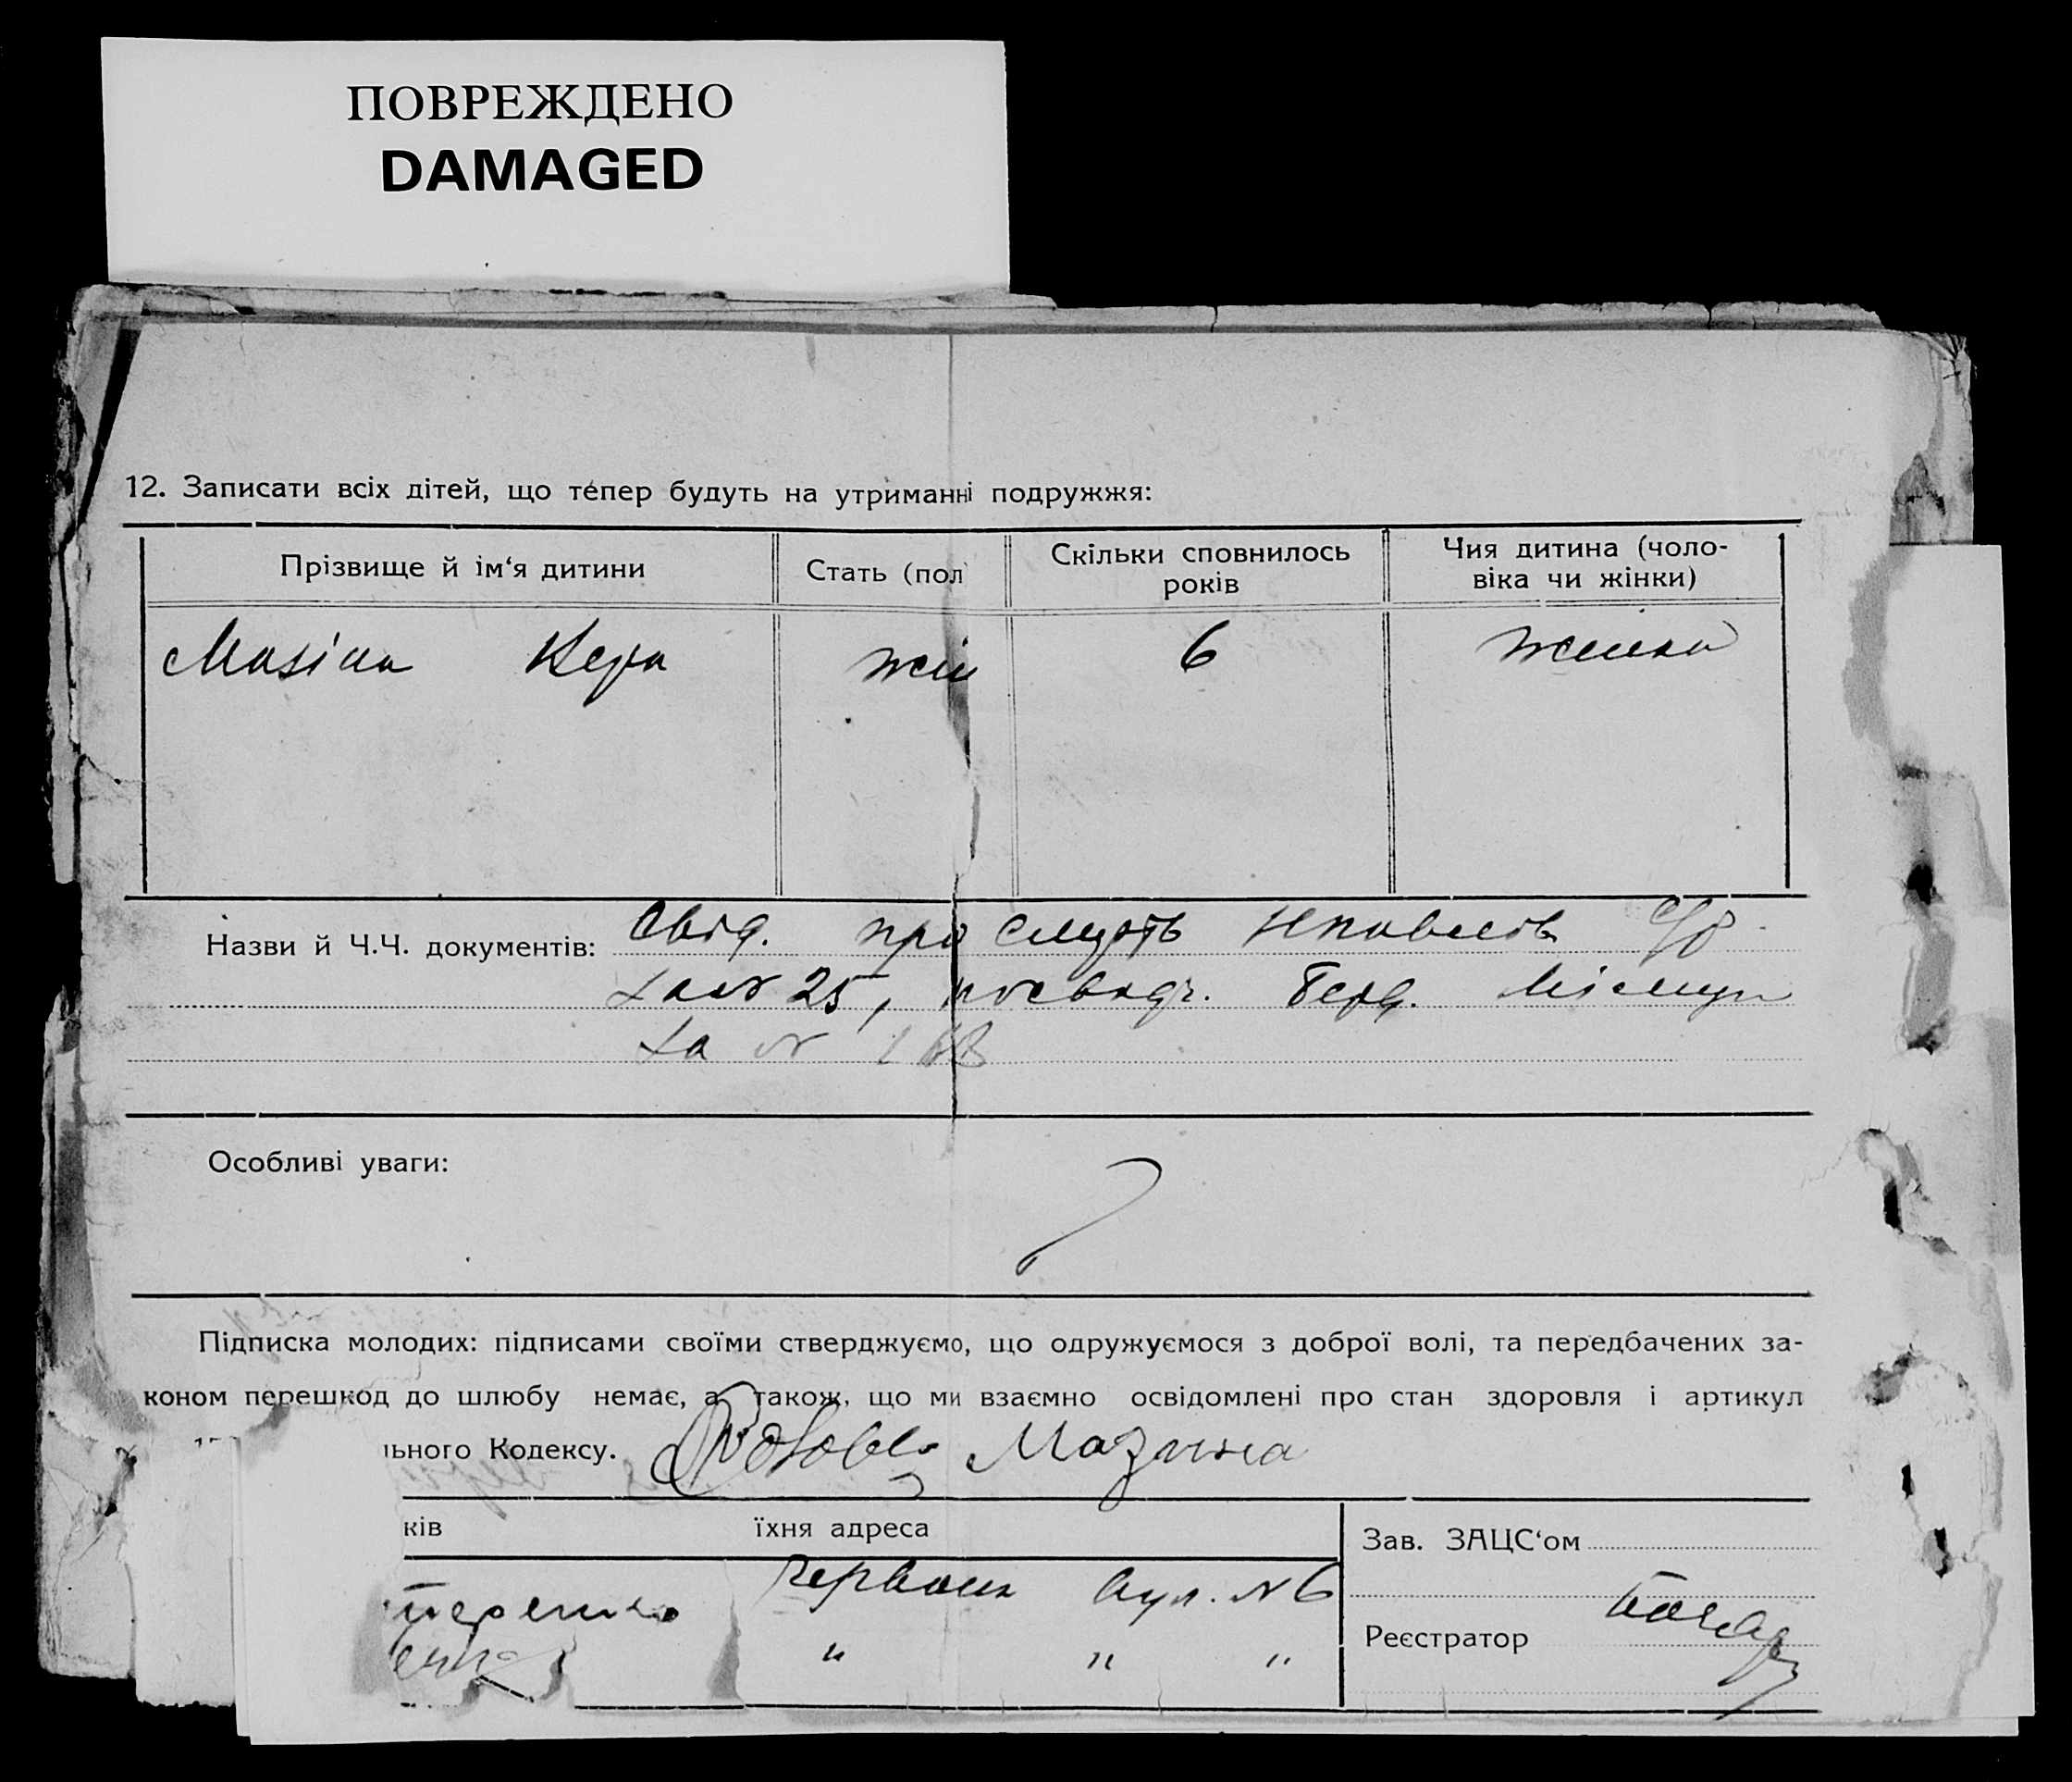 ПОВРЕЖДЕНО
DAMAGED
12. Записати всіх дітей, що тепер будуть на утриманні подружжя:
Прізвище й ім‘я дитини
Стать (пол
Скільки сповнилось років
Чия дитина (чоло-
віка чи жінки)
Мазіна жін 6 жінки
Назви й Ч.Ч. документів: Свід. про смерть с/р
за № 25, посвідч. Берд. Міськр
за № 163
Особливі уваги:
Підписка молодих: підписами своїми стверджуємо, що одружуємося з доброї волі, та передбачених за-
коном перешкод до шлюбу немає, а також, що ми взаємно освідомлені про стан здоров‘я і артикул
ьного Кодексу. Мазина
ків їхня адреса
Зав. ЗАЦС‘ом
Червона вул. № 6
" " "
Реєстратор